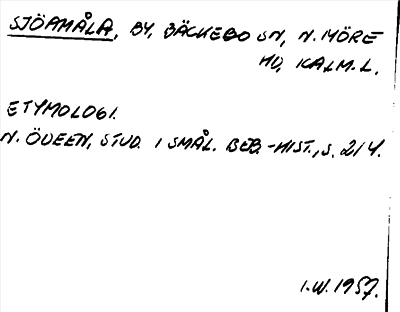 SJÖAMÅLA, BY, BÄCKEBO SN, N. MÖRE
HD, KALM. L.
ETYMOLOGI.
N. ÖDEEN, STUD. I SMÅL. BEB.-HIST., S. 214.
I.W. 1957.